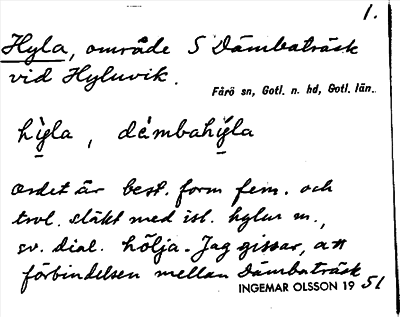 1.
Hyla, område S Dämbaträsk
vid Hyluvik.
Fårö sn, Gotl. n. hd, Gotl. län.
hỳla, dämbahỳla
Ordet är best. form fem. och
trol. släkt med isl. hylur m.,
sv. dial. hölja. Jag gissar, att
förbindelsen mellan Dämbaträsk
INGEMAR OLSSON 19 51